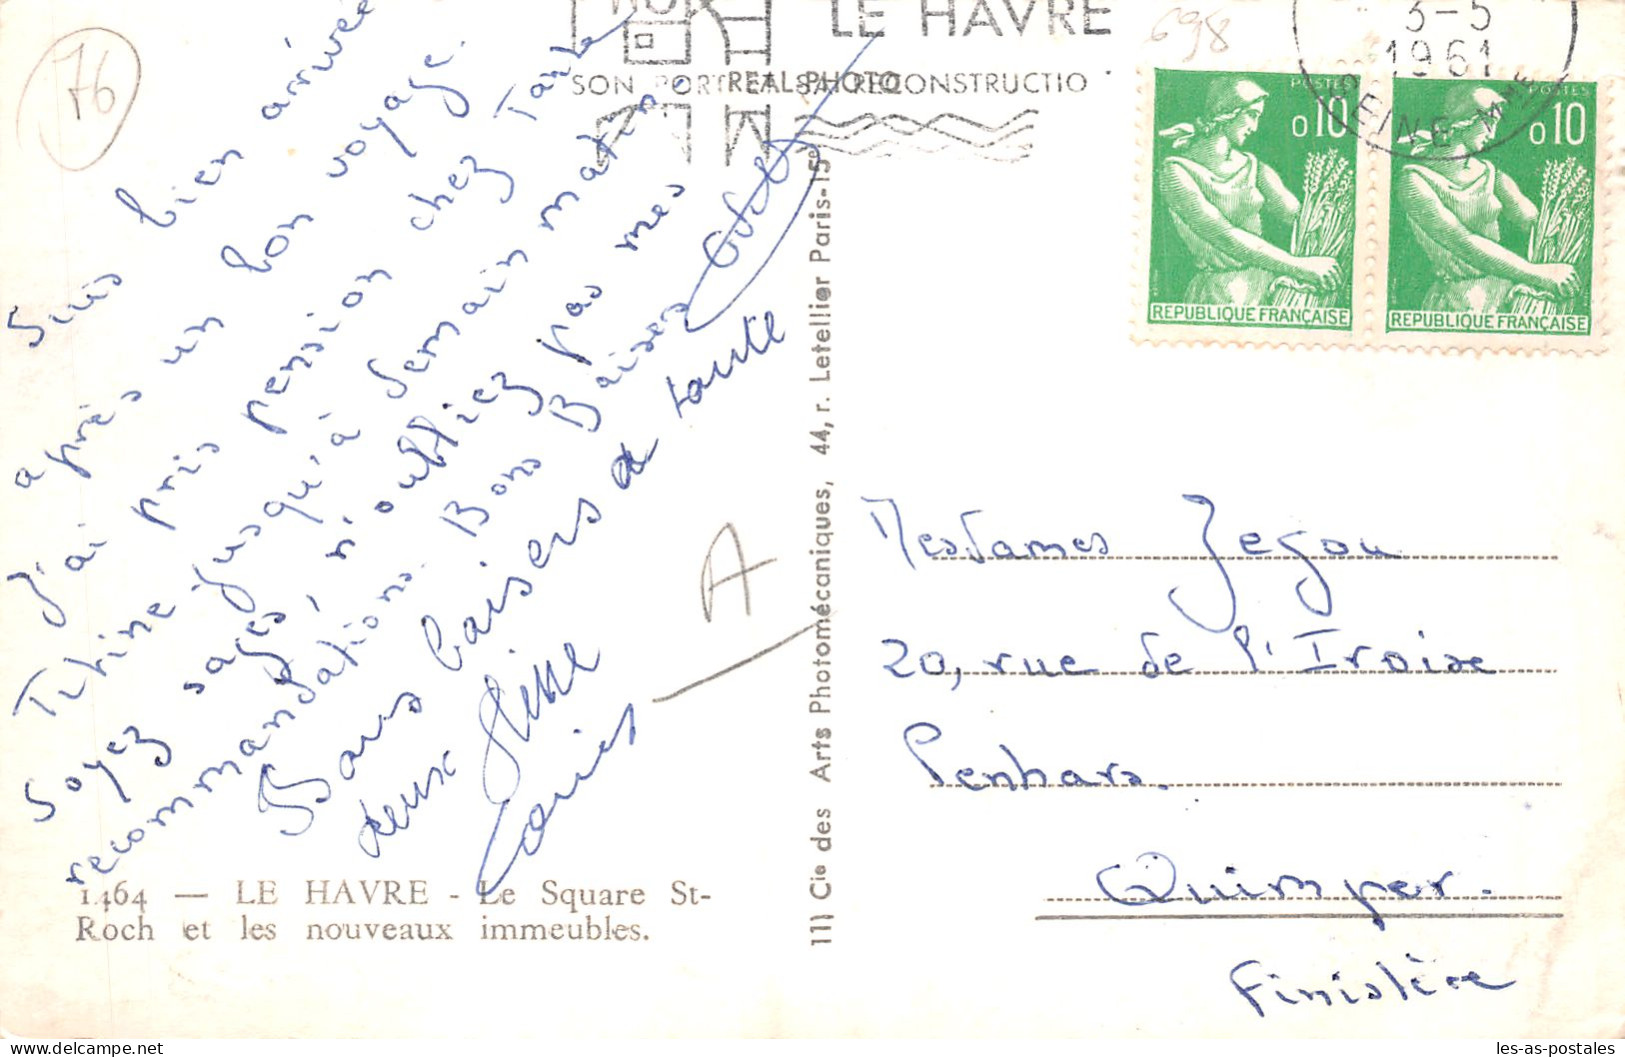 76
LE HAVRE
SON PORT SA RECONSTRUCTIO
REAL-PHOTO
698
3-5
1961
SEINE Mme
POSTES
0 10
REPUBLIQUE FRANÇAISE
POSTES
0 10
REPUBLIQUE FRANÇAISE
Suis bien arrivée
après un bon voyage.
J'ai pris pension chez Tante
Titine jusqu'à demain matin.
Soyez sages, n'oubliez pas mes
recommandations. Bons Baisers
Bons baisers de tante
deux
A
111 Cie des Arts Photomécaniques, 44, r. Letellier Paris-15e
Mesdames Jegou
20, rue de l'Iroise
Penhars.
Quimper.
Finistère
1464 — LE HAVRE - Le Square St-
Roch et les nouveaux immeubles.
les-as-postales